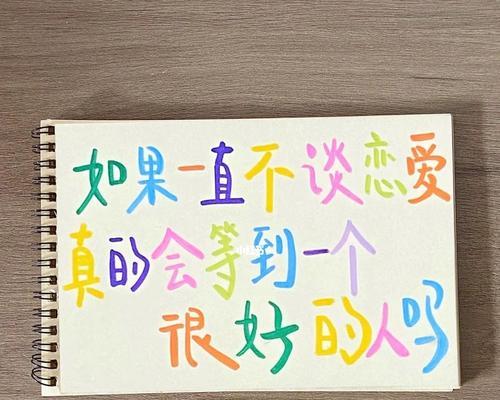 如果一直不谈恋爱
真的会等到一个
很好的人吗